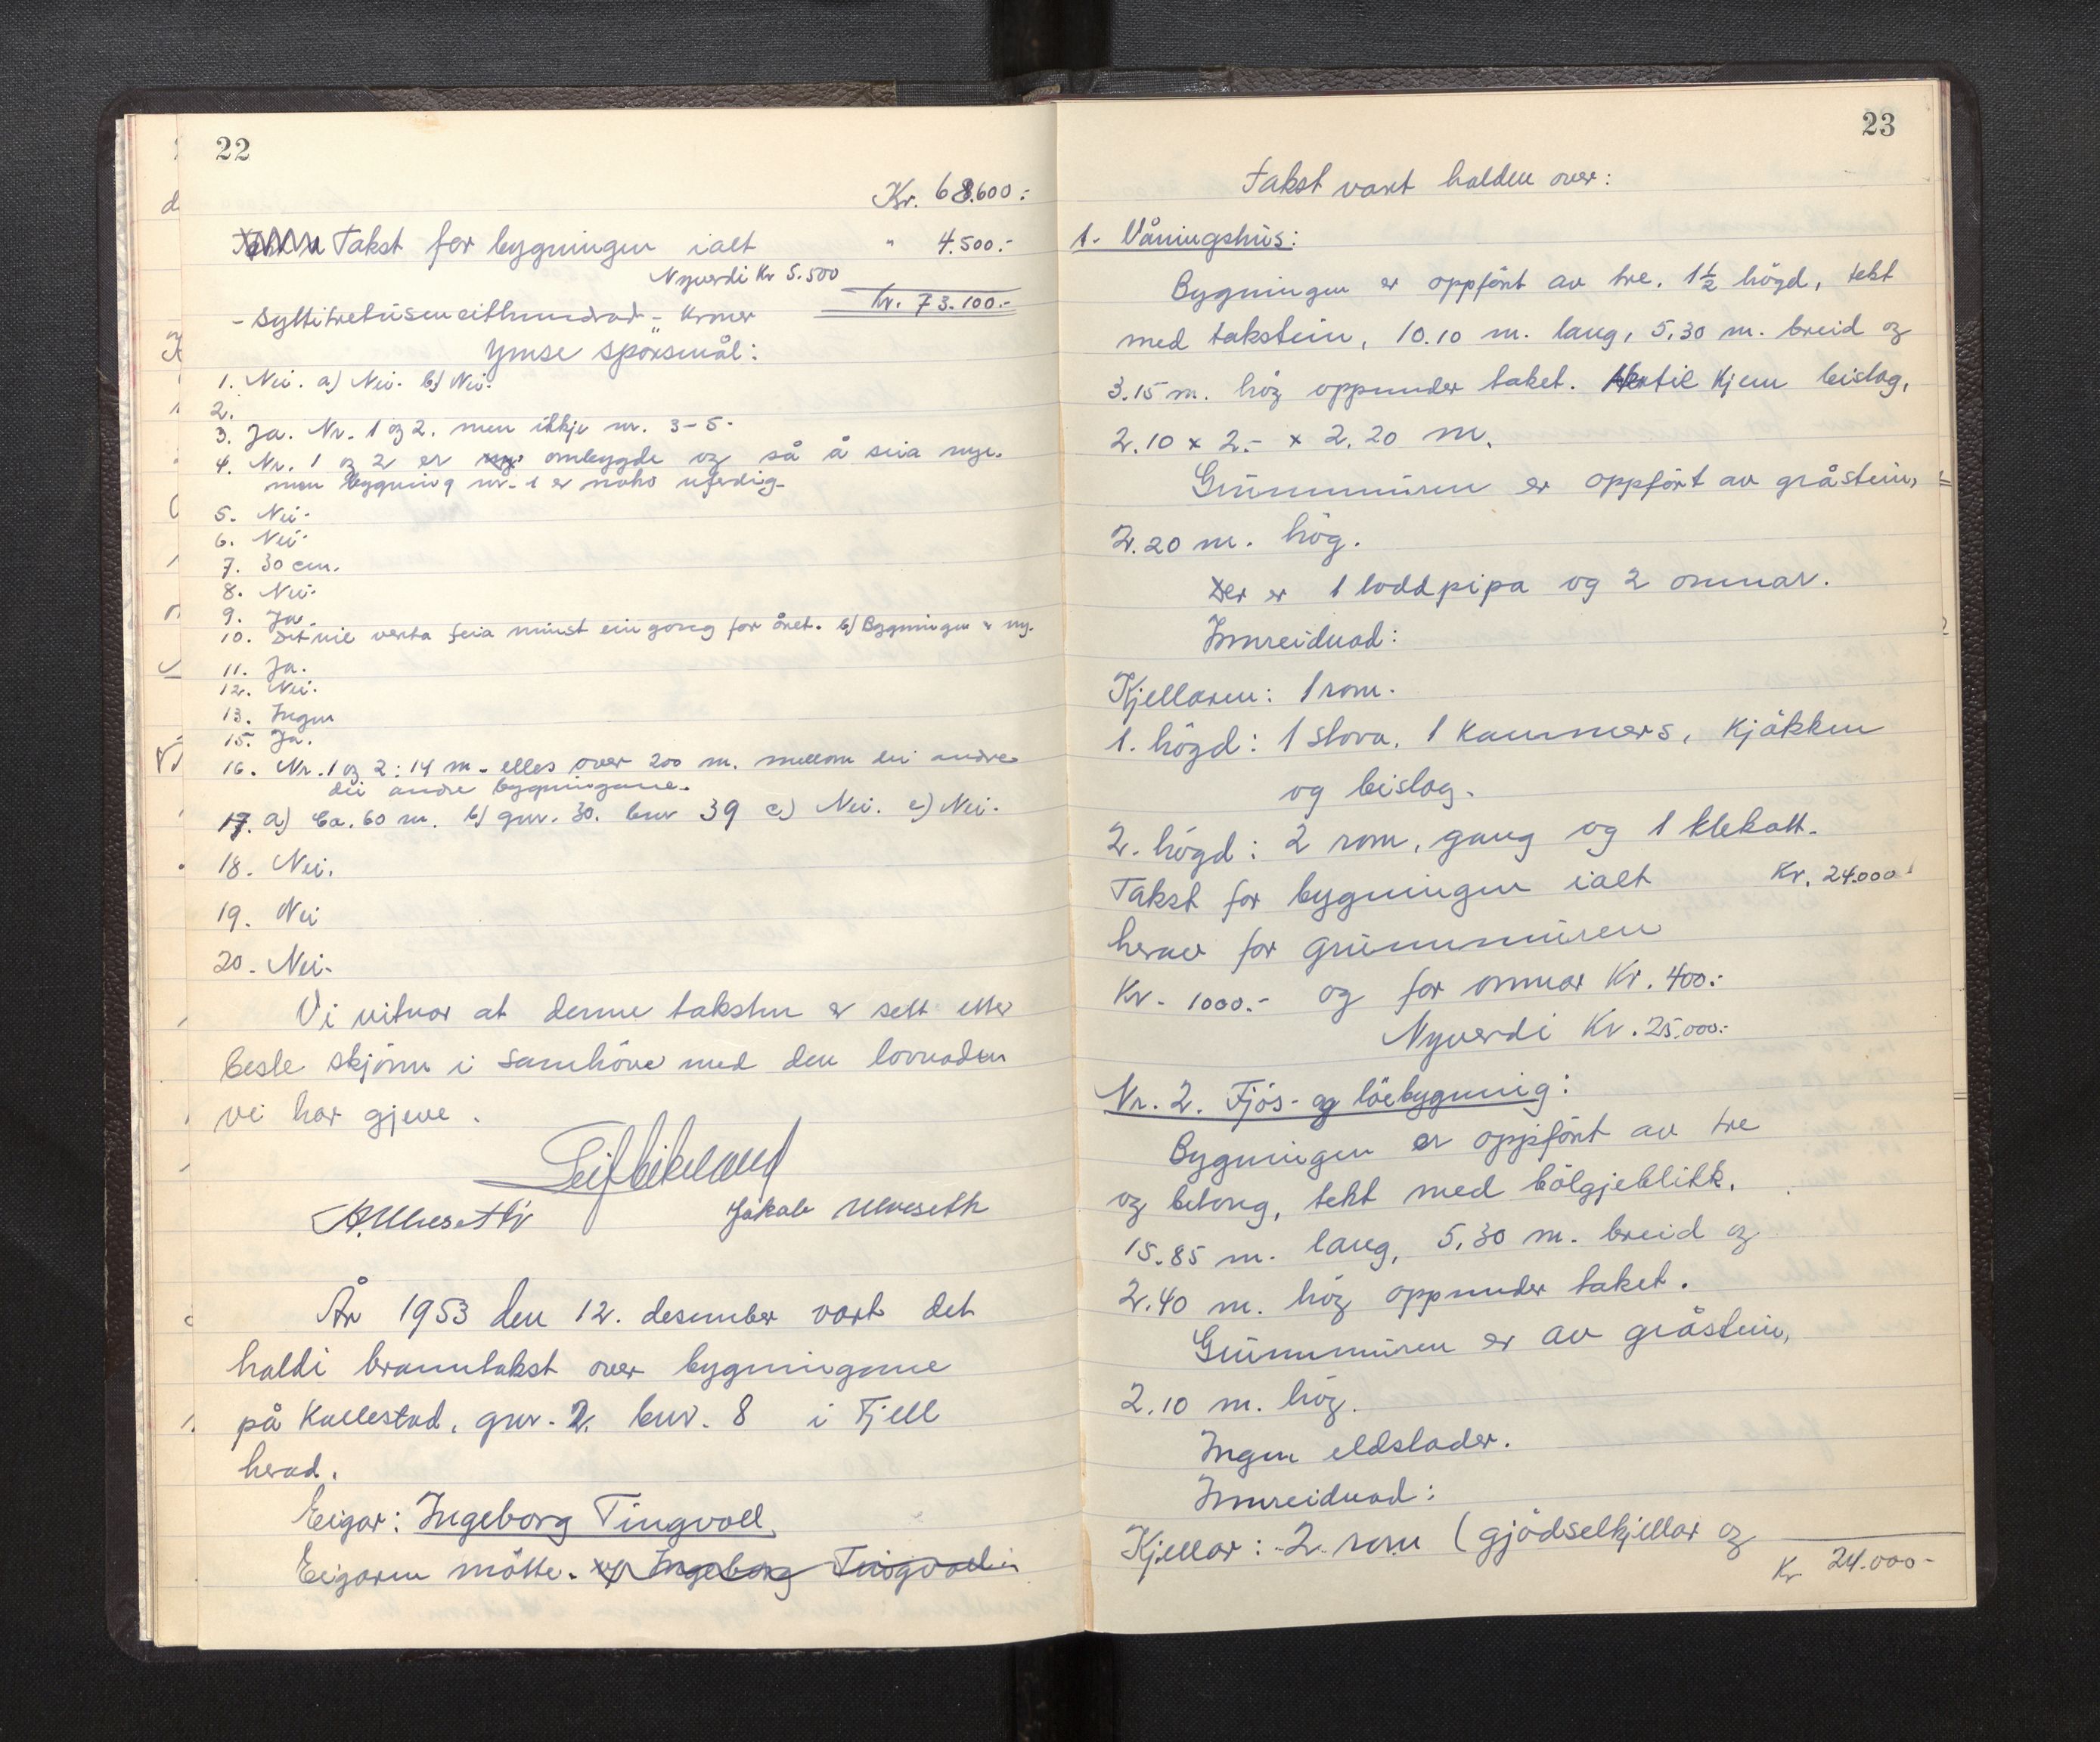 22
Kr. 68.600:
Takst for bygningen ialt " 4.500.-
Nyverdi Kr 5.500
- syttitretusen eitthundrad - Kroner Kr. 73.100.-
Ymse spørsmål:
1. Nei. a) Nei. b) Nei.
2.
3. Ja. Nr. 1 og 2. men ikkje nr. 3-5.
4. Nr. 1 og 2 er ombygde og så å seia nye.
men bygning nr. 1 er noko uferdig.
5. Nei.
6. Nei.
7. 30 cm.
8. Nei.
9. Ja.
10. Det vil verta feia minst ein gong for året. b) Bygningen er ny.
11. Ja.
12. Nei.
13. Ingen
15. Ja.
16. Nr. 1 og 2: 14 m. elles over 200 m. mellom dei andre
dei andre bygningane.
17. a) Ca. 60 m. b) gnr. 30. bnr 39 c) Nei. e) Nei.
18. Nei.
19. Nei
20. Nei.
Vi vitnar at denne taksten er sett etter
beste skjønn i samhøve med den lovnaden
vi har gjeve.
Jakob Ulveseth
År 1953 den 12. desember vart det
haldi branntakst over bygningane
på Kallestad, gnr. 2. bnr. 8 i Fjell
herad.
Eigar: Ingeborg Tingvoll
Eigaren møtte. v/ Ingeborg Tingvoll
23
Takst vart halden over:
1. Våningshus:
Bygningen er oppført av tre, 1½ högd, tekt
med takstein, 10.10 m. lang, 5,30 m. breid og
3.15 m. hög oppunder taket. Hertil kjem beislag,
2.10 x 2.- x 2.20 m.
Grunnmuren er oppført av gråstein,
2.20 m. hög.
Der er 1 loddpipa og 2 omnar.
Innreidnad:
Kjellaren: 1 rom.
1. högd: 1 stova, 1 kammers, kjøkken
og beislag.
2. högd: 2 rom, gang og 1 klekott.
Takst for bygningen ialt Kr. 24.000
herav for grunnmuren
Kr. 1000.- og for omnar Kr. 400:
Nyverdi Kr. 25.000:-
Nr. 2. Fjös- og löebygning:
Bygningen er oppført av tre
og betong, tekt med bölgjeblikk.
15.85 m. lang, 5.30 m. breid og
2.40 m. hög oppunder taket.
Grunnmuren er av gråstein,
2.10 m. hög.
Ingen eldstader.
Innreidnad:
Kjellar: 2 rom (gjödselkjellar og
Kr 24.000-